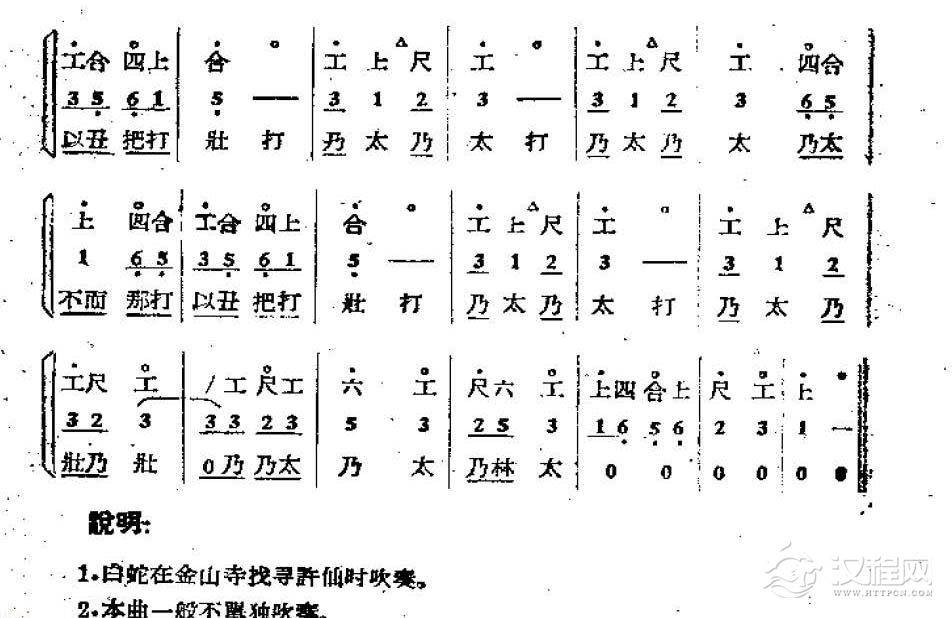 工合 四上 合 工 上 尺 工 工 上 尺 工 四合
3 5 6 1 5 — 3 1 2 3 — 3 1 2 3 6 5
以丑 把打 壯 打 乃 太 乃 太 打 乃 太 乃 太 乃太
上 四合 工合 四上 合 工 上 尺 工 工 上 尺
1 6 5 3 5 6 1 5 — 3 1 2 3 — 3 1 2
不而 那打 以丑 把打 壯 打 乃 太 乃 太 打 乃 太 乃
工尺 工 / 工 尺工 六 工 尺六 工 上四 合上 尺 工 上
3 2 3 3 3 2 3 5 3 2 5 3 1 6 5 6 2 3 1 —
壯乃 壯 0 乃 乃太 乃 太 乃林 太 0 0 0 0 0 0
說明:
1.白蛇在金山寺找寻許仙时吹奏。
2.本曲一般不單独吹奏。
汉程网
WWW.HTTPCN.COM